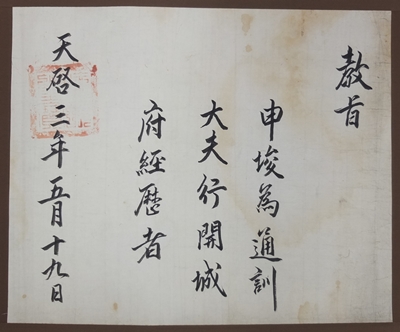 教旨
申埈為通訓
大夫行開城
府經歷者
天啓三年五月十九日